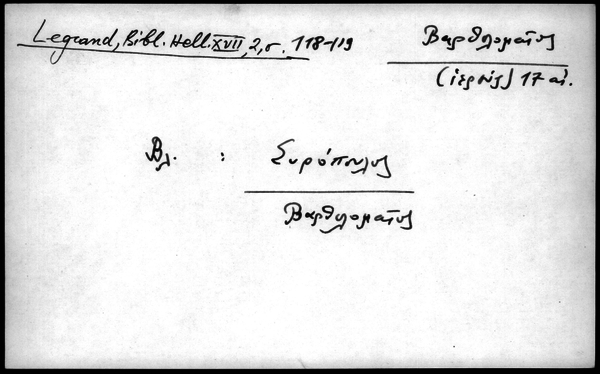 Legrand, Bibl. Hell. XVII, 2, σ. 118-119
Βαρθολομαῖος
(ἱερεύς) 17 αἰ.
Βλ. : Συρόπουλος
Βαρθολομαῖος